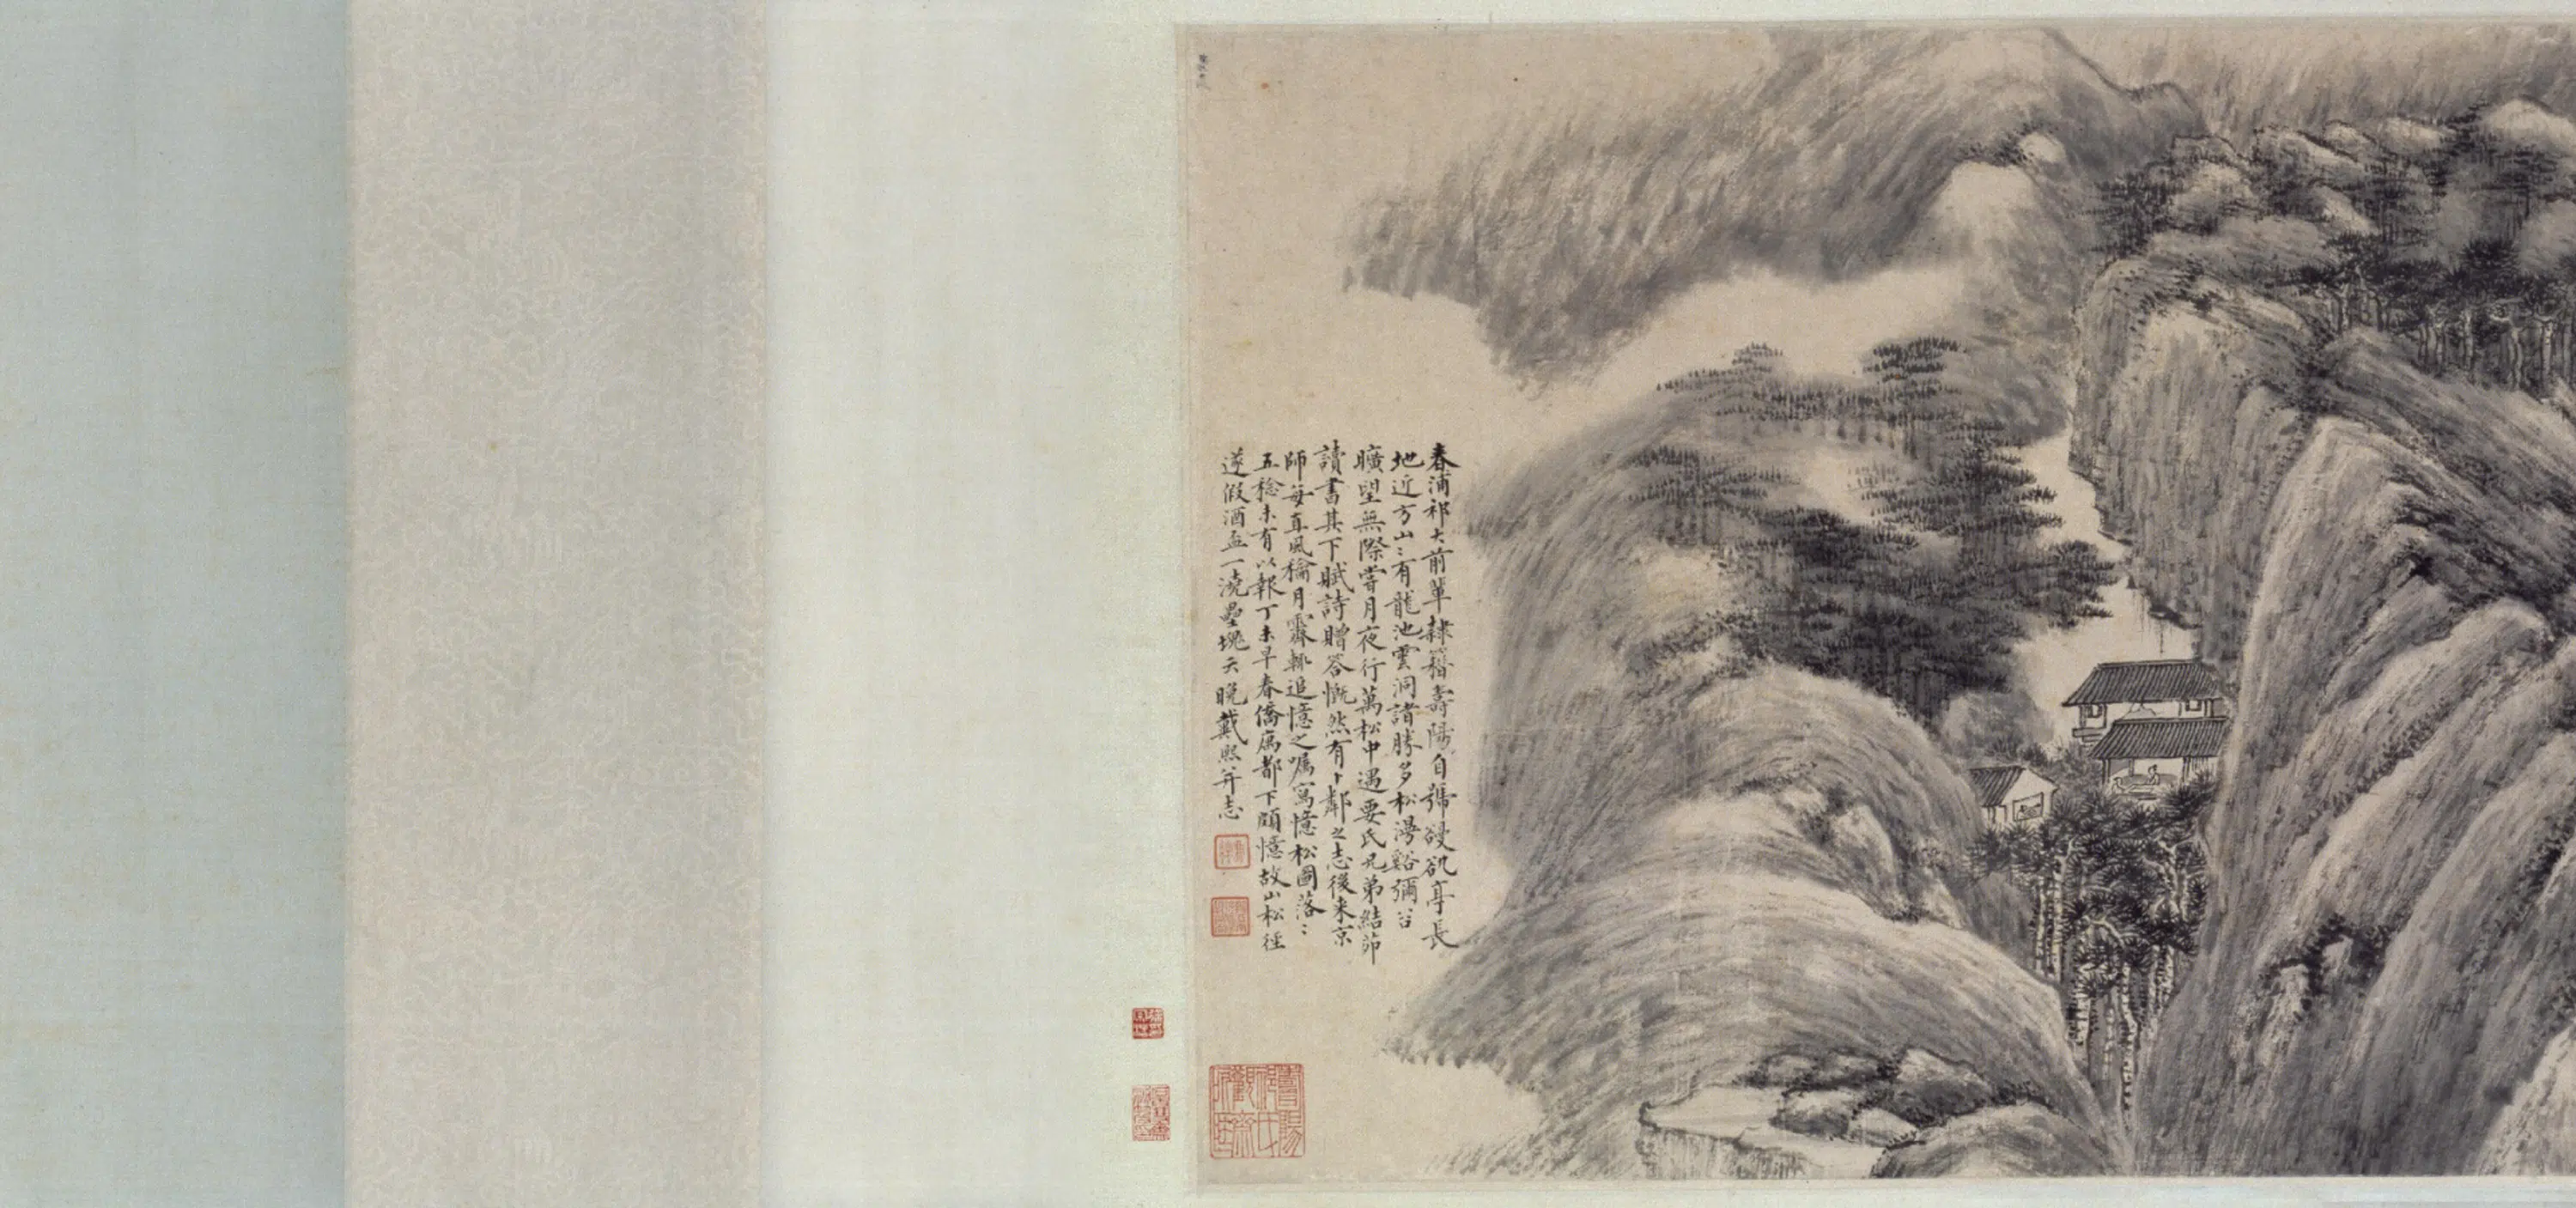 春浦祁大前輩隸籍壽陽自號䜱䜪亭長
地近方山〻有龍池雲洞諸勝多松灣谿彌谷
曠望無際嘗月夜行萬松中遇要氏兄弟結茆
讀書其下賦詩贈答慨然有卜鄰之志後来京
師每直風籥月霽輒追憶之嘱寫憶松圖落〻
五稔未有以報丁未早春僑寓都下頗憶故山松徑
遂假酒盃一澆壘塊云晚戴熙并志